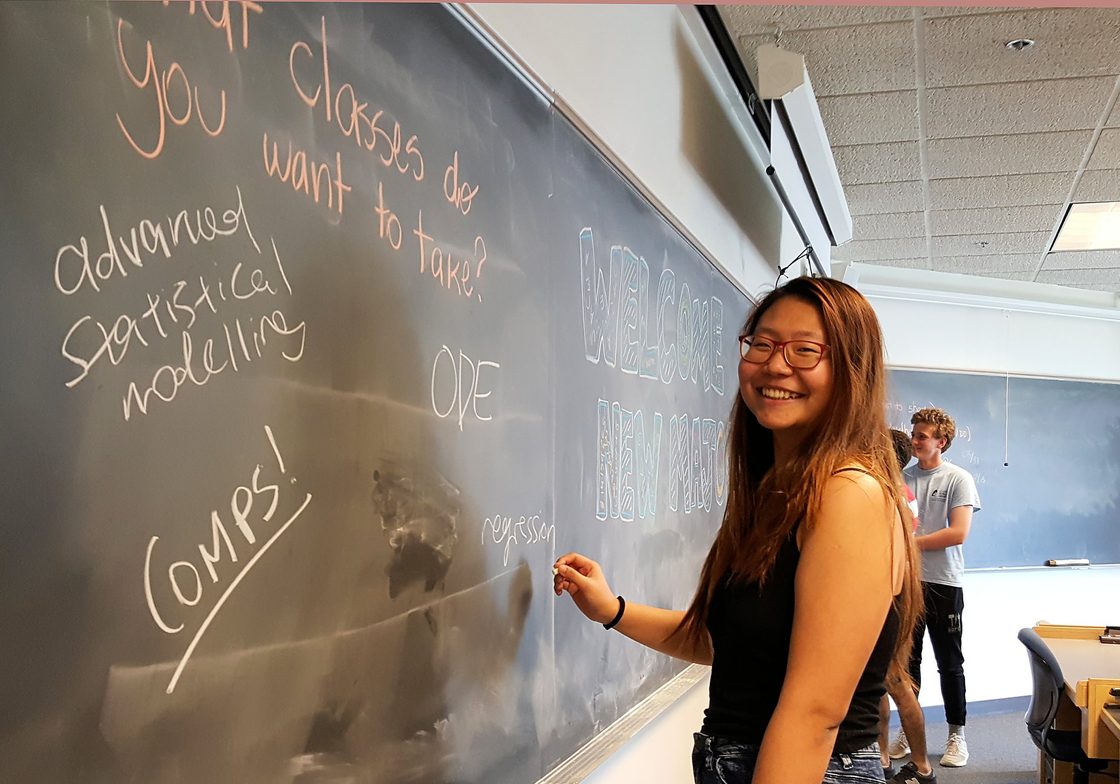 you classes do
want to take?
advanced
Statistical
modelling
ODE
COMPS!
regression
WELCOME
NEW MAJO